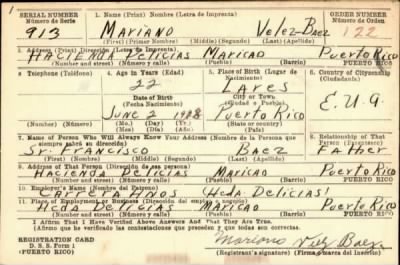 SERIAL NUMBER 1. Name (Print) Nombre (Letra de Imprenta) ORDER NUMBER
Número de Serie Número de Orden
913 MARIANO Velez Baez 122
(First) (Nombre) (Middle) (Segundo) (Last) (Apellido)
2. Address (Print) Dirección (Letra de Imprenta)
HACIENDA DELICIAS MARICAO Puerto Rico
(Number and street) (Número y calle) (Town) (Pueblo) (Barrio) PUERTO RICO
3. Telephone (Teléfono) 4. Age in Years (Edad) 5. Place of Birth (Lugar de Nacimiento) 6. Country of Citizenship (Ciudadanía)
22 LARES
Date of Birth City or Town
(Fecha Nacimiento) (Ciudad o Pueblo)
June 2 1918 Puerto Rico E. U. A.
(Number) (Número) (Mo.) (Day) (Yr.) (State or country)
(Mes) (Día) (Año) (Estado o País)
7. Name of Person Who Will Always Know Your Address (Nombre de la Persona que siempre sabrá su dirección) 8. Relationship of That Person (Parentesco)
Sr. Francisco Baez Father
(First) (Nombre) (Middle) (Segundo) (Last) (Apellido)
9. Address of That Person (Dirección de esa persona)
Hacienda Delicias Maricao Puerto Rico
(Number and street) (Número y calle) (Town) (Pueblo) (Barrio) PUERTO RICO
10. Employer's Name (Nombre del Patrono)
(Hcda. Delicias)
11. Place of Employment or Business (Dirección del empleo o negocio)
Hcda Delicias Maricao Puerto Rico
(Number and street) (Número y calle) (Town) (Pueblo) (Barrio) PUERTO RICO
I Affirm That I Have Verified Above Answers And That They Are True.
(Afirmo que he verificado las contestaciones que preceden y que éstas son ciertas.)
REGISTRATION CARD
D. S. S. Form 1
(PUERTO RICO)
Mariano Velez Baez
(Registrant's signature) (Firma o marca del Inscrito)